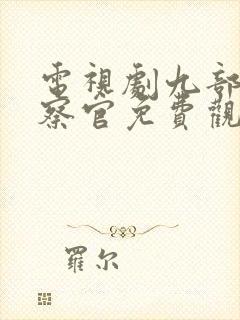 電視劇九部
察官免費觀
羅尔